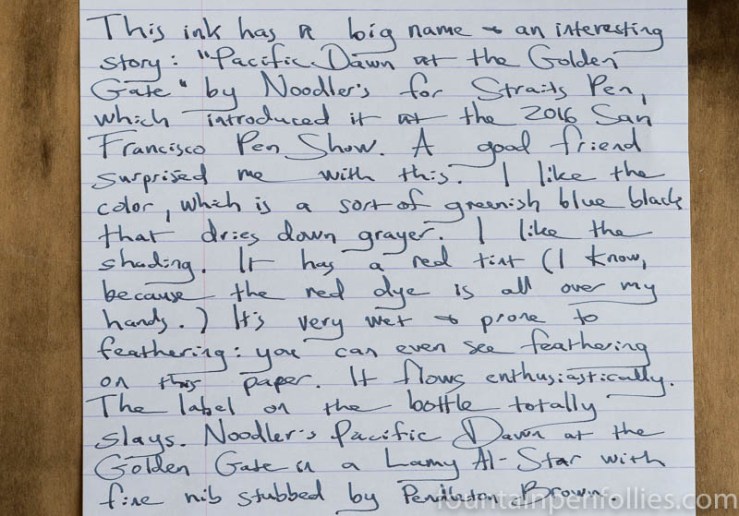 This ink has a big name & an interesting
story: "Pacific Dawn at the Golden
Gate" by Noodler's for Straits Pen,
which introduced it at the 2016 San
Francisco Pen Show. A good friend
surprised me with this. I like the
color, which is a sort of greenish blue black
that dries down grayer. I like the
shading. It has a red tint (I know,
because the red dye is all over my
hands.) It's very wet & prone to
feathering: you can even see feathering
on this paper. It flows enthusiastically.
The label on the bottle totally
slays. Noodler's Pacific Dawn at the
Golden Gate in a Lamy Al-Star with
fine nib stubbed by Pendleton Brown.
fountainpenfollies.com